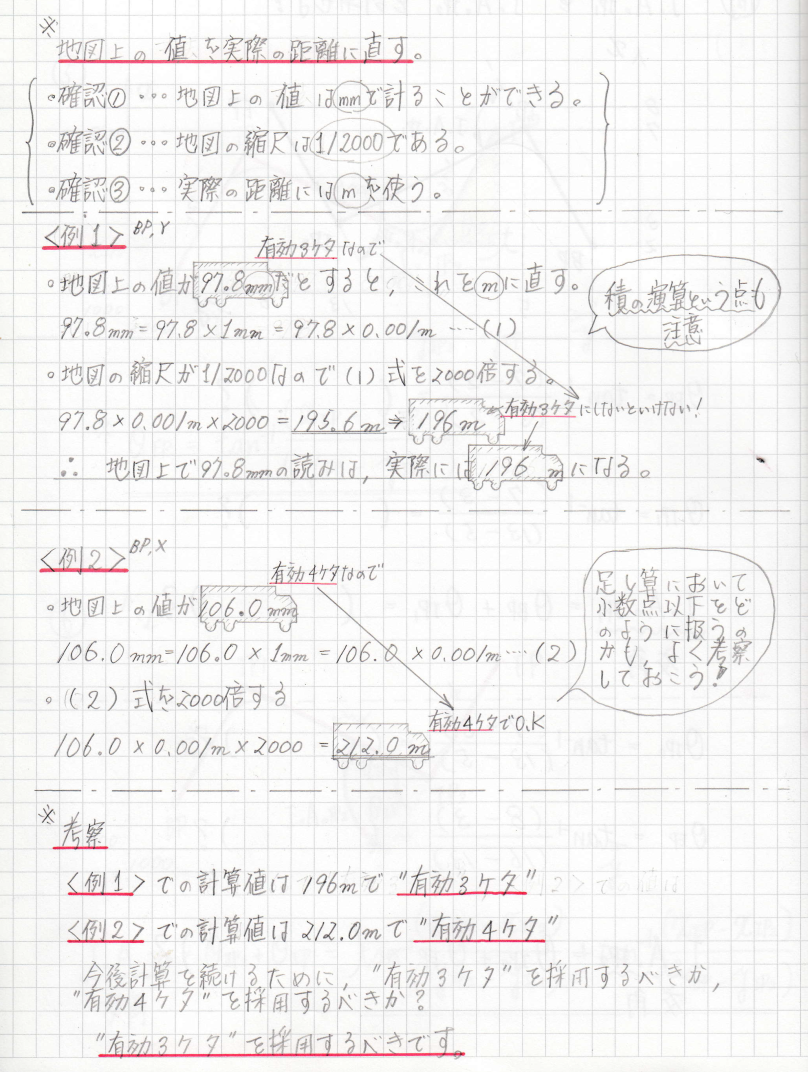 ※
地図上の値を実際の距離に直す。
・確認① … 地図上の値はmmで計ることができる。
・確認② … 地図の縮尺は1/2000である。
・確認③ … 実際の距離にはmを使う。
<例1> BP,Y
有効3ケタなので
・地図上の値が97.8mmだとすると, これをmに直す。
積の演算という点も
注意
97.8mm = 97.8 × 1mm = 97.8 × 0.001m … (1)
・地図の縮尺が1/2000なので (1) 式を2000倍する。
97.8 × 0.001m × 2000 = 195.6m ⇒ 196m 有効3ケタにしないといけない!
∴ 地図上で97.8mmの読みは, 実際には196mになる。
<例2> BP,X
有効4ケタなので
・地図上の値が106.0mm
足し算において
小数点以下をど
のように扱うの
かも, よく考察
しておこう!
106.0mm = 106.0 × 1mm = 106.0 × 0.001m … (2)
・(2) 式を2000倍する
有効4ケタでO.K
106.0 × 0.001m × 2000 = 212.0m
※
考察
<例1> での計算値は 196mで "有効3ケタ"
<例2> での計算値は 212.0mで "有効4ケタ"
今後計算を続けるために, "有効3ケタ" を採用するべきか,
"有効4ケタ" を採用するべきか?
"有効3ケタ" を採用するべきです。